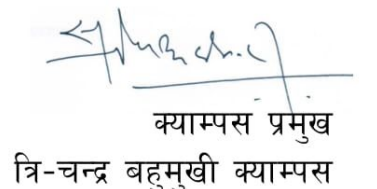 क्याम्पस प्रमुख
त्रि-चन्द्र बहुमुखी क्याम्पस